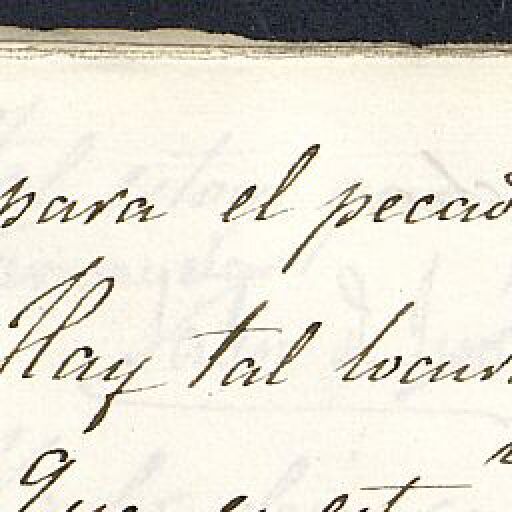 para el pecad
Hay tal locur
Que